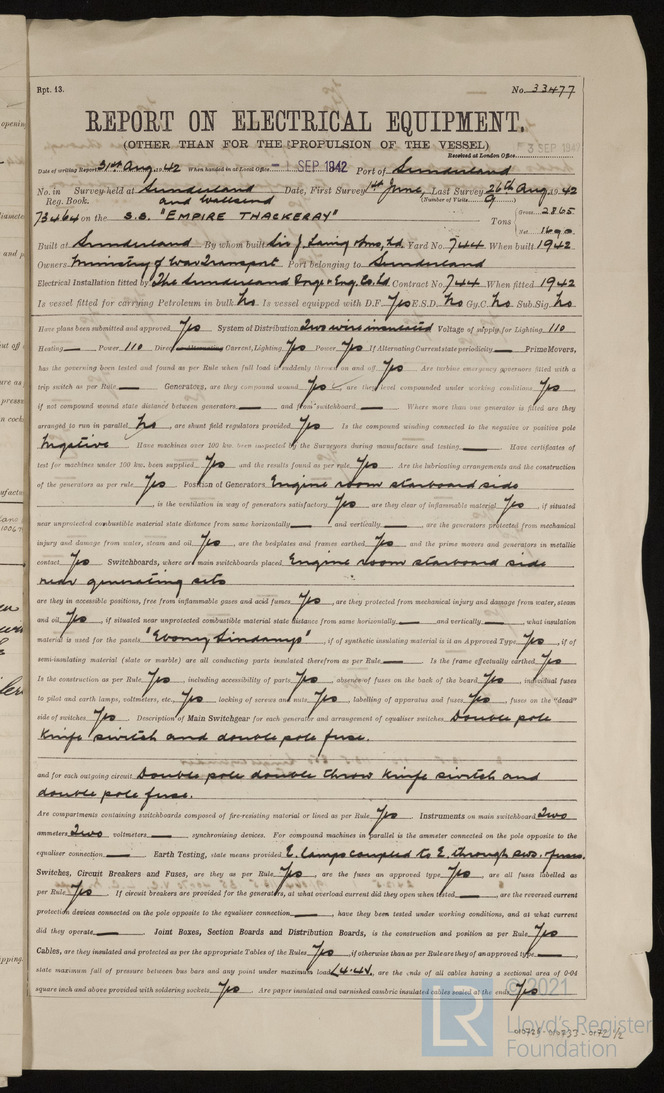 Rpt. 13.
No. 33477
REPORT ON ELECTRICAL EQUIPMENT.
(OTHER THAN FOR THE PROPULSION OF THE VESSEL)
3 SEP 1942
Received at London Office
Date of writing Report 31st Aug. 1942 When handed in at Local Office - 1 SEP 1942 Port of Sunderland
No. in Survey held at Sunderland Date, First Survey 1st June, Last Survey 26th Aug. 1942
Reg. Book. and Wallsend (Number of Visits 9)
73464 on the S.S. "EMPIRE THACKERAY" Tons Gross 2865
Net 1690
Built at Sunderland By whom built Sir J. Laing & Sons, Ld Yard No. 744 When built 1942
Owners Ministry of War Transport Port belonging to Sunderland
Electrical Installation fitted by The Sunderland Forge & Eng. Co. Ld Contract No. 744 When fitted 1942
Is vessel fitted for carrying Petroleum in bulk No Is vessel equipped with D.F. Yes E.S.D. No Gy.C. No Sub.Sig. No
Have plans been submitted and approved Yes System of Distribution Two wire insulated Voltage of supply for Lighting 110
Heating — Power 110 Direct or Alternating Current, Lighting Yes Power Yes If Alternating Current state periodicity — Prime Movers,
has the governing been tested and found as per Rule when full load is suddenly thrown on and off Yes Are turbine emergency governors fitted with a
trip switch as per Rule — Generators, are they compound wound Yes, are they level compounded under working conditions Yes,
if not compound wound state distance between generators — and from switchboard — Where more than one generator is fitted are they
arranged to run in parallel No, are shunt field regulators provided Yes Is the compound winding connected to the negative or positive pole
Negative Have machines over 100 kw. been inspected by the Surveyors during manufacture and testing — Have certificates of
test for machines under 100 kw. been supplied Yes and the results found as per rule Yes Are the lubricating arrangements and the construction
of the generators as per rule Yes Position of Generators Engine room starboard side
, is the ventilation in way of generators satisfactory Yes are they clear of inflammable material Yes, if situated
near unprotected combustible material state distance from same horizontally — and vertically —, are the generators protected from mechanical
injury and damage from water, steam and oil Yes, are the bedplates and frames earthed Yes and the prime movers and generators in metallic
contact Yes Switchboards, where are main switchboards placed Engine room starboard side
near generating sets
are they in accessible positions, free from inflammable gases and acid fumes Yes, are they protected from mechanical injury and damage from water, steam
and oil Yes, if situated near unprotected combustible material state distance from same horizontally — and vertically —, what insulation
material is used for the panels "Ebony Sindanyo", if of synthetic insulating material is it an Approved Type Yes, if of
semi-insulating material (slate or marble) are all conducting parts insulated therefrom as per Rule — Is the frame effectually earthed Yes
Is the construction as per Rule Yes, including accessibility of parts Yes, absence of fuses on the back of the board Yes, individual fuses
to pilot and earth lamps, voltmeters, etc., Yes locking of screws and nuts Yes, labelling of apparatus and fuses Yes, fuses on the "dead"
side of switches Yes Description of Main Switchgear for each generator and arrangement of equaliser switches Double pole
knife switch and double pole fuse.
and for each outgoing circuit Double pole double throw knife switch and
double pole fuse.
Are compartments containing switchboards composed of fire-resisting material or lined as per Rule Yes Instruments on main switchboard Two
ammeters Two voltmeters — synchronising devices. For compound machines in parallel is the ammeter connected on the pole opposite to the
equaliser connection — Earth Testing, state means provided E. lamps coupled to E. through sws. & fuses.
Switches, Circuit Breakers and Fuses, are they as per Rule Yes, are the fuses an approved type Yes, are all fuses labelled as
per Rule Yes If circuit breakers are provided for the generators, at what overload current did they open when tested —, are the reversed current
protection devices connected on the pole opposite to the equaliser connection —, have they been tested under working conditions, and at what current
did they operate — Joint Boxes, Section Boards and Distribution Boards, is the construction and position as per Rule Yes
Cables, are they insulated and protected as per the appropriate Tables of the Rules Yes, if otherwise than as per Rule are they of an approved type —,
state maximum fall of pressure between bus bars and any point under maximum load <4.4V. are the ends of all cables having a sectional area of 0·04
square inch and above provided with soldering sockets Yes Are paper insulated and varnished cambric insulated cables sealed at the ends Yes
© 2021
LR
Lloyd's Register
Foundation
010728-010733-0172 1/2